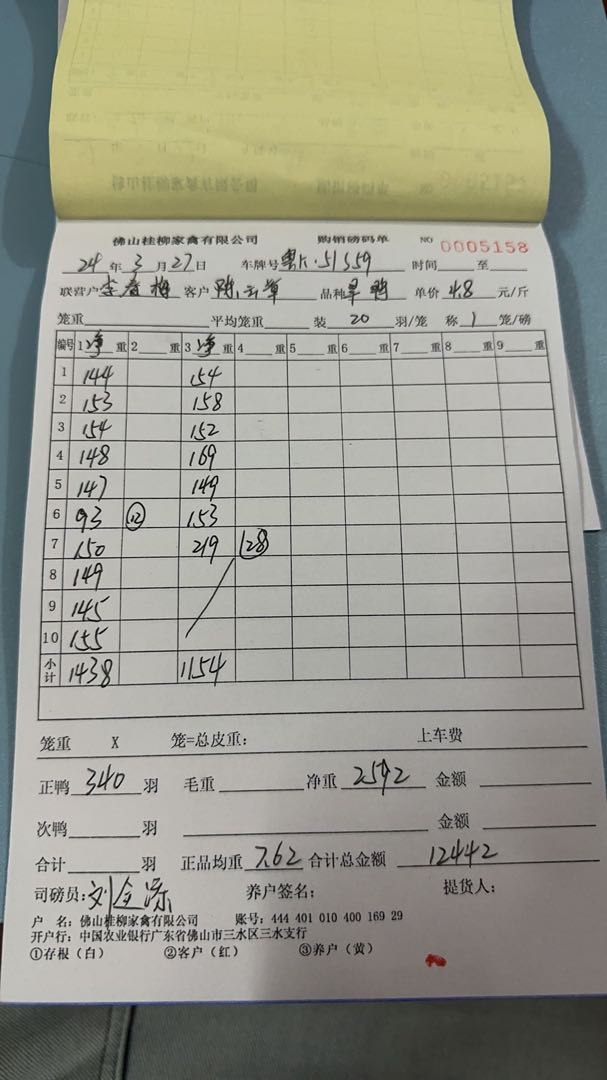 佛山桂柳家禽有限公司 购销磅码单 NO 0005158
24 年 3 月 27 日 车牌号 粤K·51S59 时间 至
联营户 李春梅 客户 陈云 品种 旱鸭 单价 4.8 元/斤
笼重 平均笼重 装 20 羽/笼 称 1 笼/磅
编号 1 净 重 2 重 3 净 重 4 重 5 重 6 重 7 重 8 重 9 重
1 144 154
2 153 158
3 154 152
4 148 169
5 147 149
6 93 ⑫ 153
7 150 219 28
8 149
9 145
10 155
小计 1438 1154
笼重 X 笼=总皮重: 上车费
正鸭 340 羽 毛重 净重 2592 金额
次鸭 羽 金额
合计 羽 正品均重 7.62 合计总金额 12442
司磅员: 刘金 养户签名: 提货人:
户 名: 佛山桂柳家禽有限公司 账号: 444 401 010 400 169 29
开户行: 中国农业银行广东省佛山市三水区三水支行
①存根（白） ②客户（红） ③养户（黄）